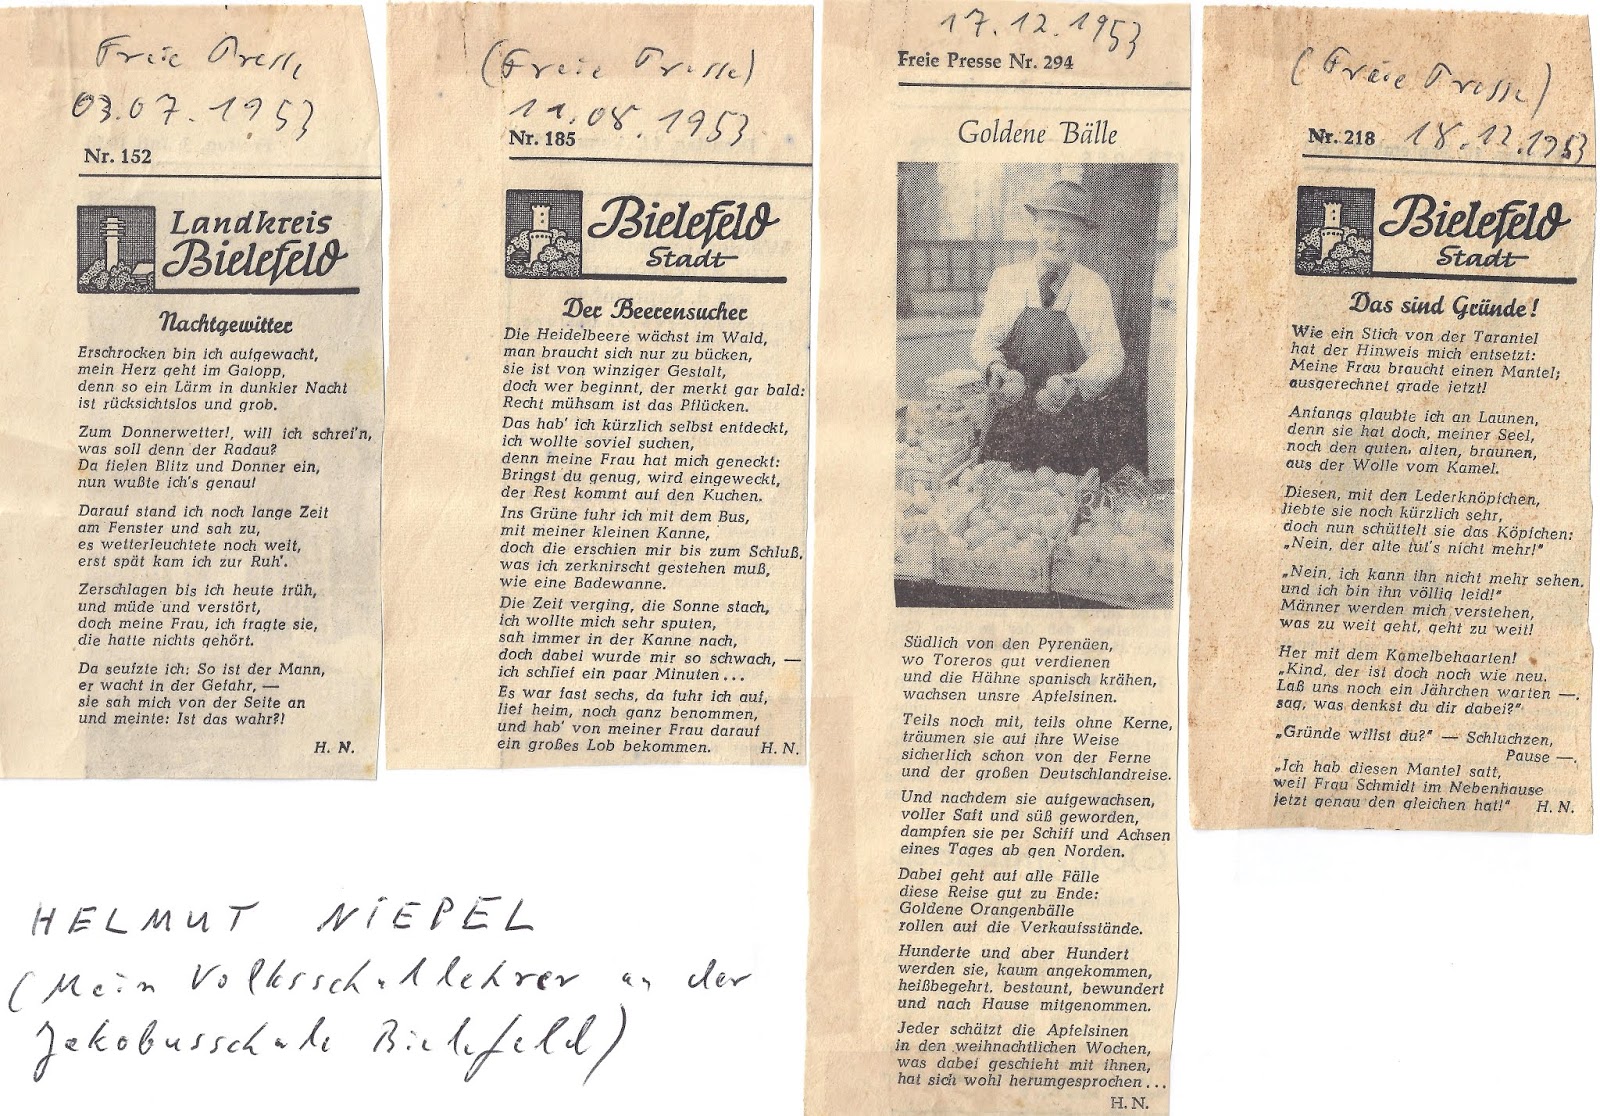 Freie Presse
03.07.1953
Nr. 152
Landkreis
Bielefeld
Nachtgewitter
Erschrocken bin ich aufgewacht,
mein Herz geht im Galopp,
denn so ein Lärm in dunkler Nacht
ist rücksichtslos und grob.
Zum Donnerwetter!, will ich schrei'n,
was soll denn der Radau?
Da fielen Blitz und Donner ein,
nun wußte ich's genau!
Darauf stand ich noch lange Zeit
am Fenster und sah zu,
es wetterleuchtete noch weit,
erst spät kam ich zur Ruh'.
Zerschlagen bis ich heute früh,
und müde und verstört,
doch meine Frau, ich fragte sie,
die hatte nichts gehört.
Da seufzte ich: So ist der Mann,
er wacht in der Gefahr, —
sie sah mich von der Seite an
und meinte: Ist das wahr?!
H. N.
(Freie Presse)
11.08.1953
Nr. 185
Bielefeld
Stadt
Der Beerensucher
Die Heidelbeere wächst im Wald,
man braucht sich nur zu bücken,
sie ist von winziger Gestalt,
doch wer beginnt, der merkt gar bald:
Recht mühsam ist das Pflücken.
Das hab' ich kürzlich selbst entdeckt,
ich wollte soviel suchen,
denn meine Frau hat mich geneckt:
Bringst du genug, wird eingeweckt,
der Rest kommt auf den Kuchen.
Ins Grüne fuhr ich mit dem Bus,
mit meiner kleinen Kanne,
doch die erschien mir bis zum Schluß,
was ich zerknirscht gestehen muß,
wie eine Badewanne.
Die Zeit verging, die Sonne stach,
ich wollte mich sehr sputen,
sah immer in der Kanne nach,
doch dabei wurde mir so schwach, —
ich schlief ein paar Minuten...
Es war fast sechs, da fuhr ich auf,
lief heim, noch ganz benommen,
und hab' von meiner Frau darauf
ein großes Lob bekommen. H. N.
17.12.1953
Freie Presse Nr. 294
Goldene Bälle
Südlich von den Pyrenäen,
wo Toreros gut verdienen
und die Hähne spanisch krähen,
wachsen unsre Apfelsinen.
Teils noch mit, teils ohne Kerne,
träumen sie auf ihre Weise
sicherlich schon von der Ferne
und der großen Deutschlandreise.
Und nachdem sie aufgewachsen,
voller Saft und süß geworden,
dampfen sie per Schiff und Achsen
eines Tages ab gen Norden.
Dabei geht auf alle Fälle
diese Reise gut zu Ende:
Goldene Orangenbälle
rollen auf die Verkaufsstände.
Hunderte und aber Hundert
werden sie, kaum angekommen,
heißbegehrt, bestaunt, bewundert
und nach Hause mitgenommen.
Jeder schätzt die Apfelsinen
in den weihnachtlichen Wochen,
was dabei geschieht mit ihnen,
hat sich wohl herumgesprochen...
H. N.
(Freie Presse)
Nr. 218 18.12.1953
Bielefeld
Stadt
Das sind Gründe!
Wie ein Stich von der Tarantel
hat der Hinweis mich entsetzt:
Meine Frau braucht einen Mantel;
ausgerechnet grade jetzt!
Anfangs glaubte ich an Launen,
denn sie hat doch, meiner Seel,
noch den guten, alten, braunen,
aus der Wolle vom Kamel.
Diesen, mit den Lederknöpfchen,
liebte sie noch kürzlich sehr,
doch nun schüttelt sie das Köpfchen:
„Nein, der alte tut's nicht mehr!"
„Nein, ich kann ihn nicht mehr sehen,
und ich bin ihn völlig leid!"
Männer werden mich verstehen,
was zu weit geht, geht zu weit!
Her mit dem Kamelbehaarten!
„Kind, der ist doch noch wie neu,
Laß uns noch ein Jährchen warten —,
sag, was denkst du dir dabei?"
„Gründe willst du?" — Schluchzen,
Pause —.
„Ich hab diesen Mantel satt,
weil Frau Schmidt im Nebenhause
jetzt genau den gleichen hat!" H. N.
HELMUT NIEPEL
(Mein Volksschullehrer an der
Jakobusschule Bielefeld)